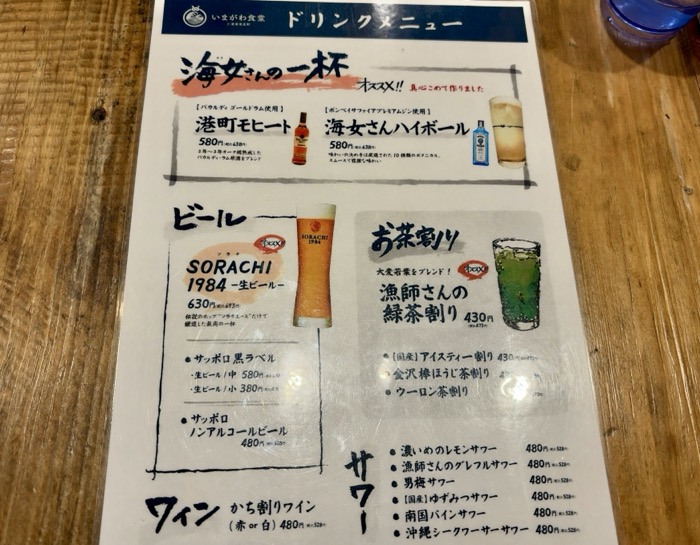 いまがわ食堂
ドリンクメニュー
海女さんの一杯
オススメ!! 真心こめて作りました
【バカルディ ゴールドラム使用】
港町モヒート
580円(税込638円)
【ボンベイサファイアプレミアムジン使用】
海女さんハイボール
580円(税込638円)
ビール
SORACHI
1984 -生ビール-
630円(税込693円)
伝説のホップ"ソラチエース"だけで
醸造した最高の一杯
SORACHI
1984
● サッポロ黒ラベル
・生ビール/中 580円
・生ビール/小 380円
● サッポロ
ノンアルコールビール
480円(税込528円)
お茶割り
大麦若葉をブレンド!
漁師さんの
緑茶割り 430円
(税込473円)
● 【国産】アイスティー割り 430円
● 金沢棒ほうじ茶割り
● ウーロン茶割り
サワー
● 濃いめのレモンサワー 480円(税込528円)
● 漁師さんのグレフルサワー 480円(税込528円)
● 男梅サワー 480円(税込528円)
● 【国産】ゆずみつサワー 480円(税込528円)
● 南国パインサワー 480円(税込528円)
● 沖縄シークワーサーサワー 480円(税込528円)
ワイン
かち割りワイン
(赤 or 白) 480円(税込528円)